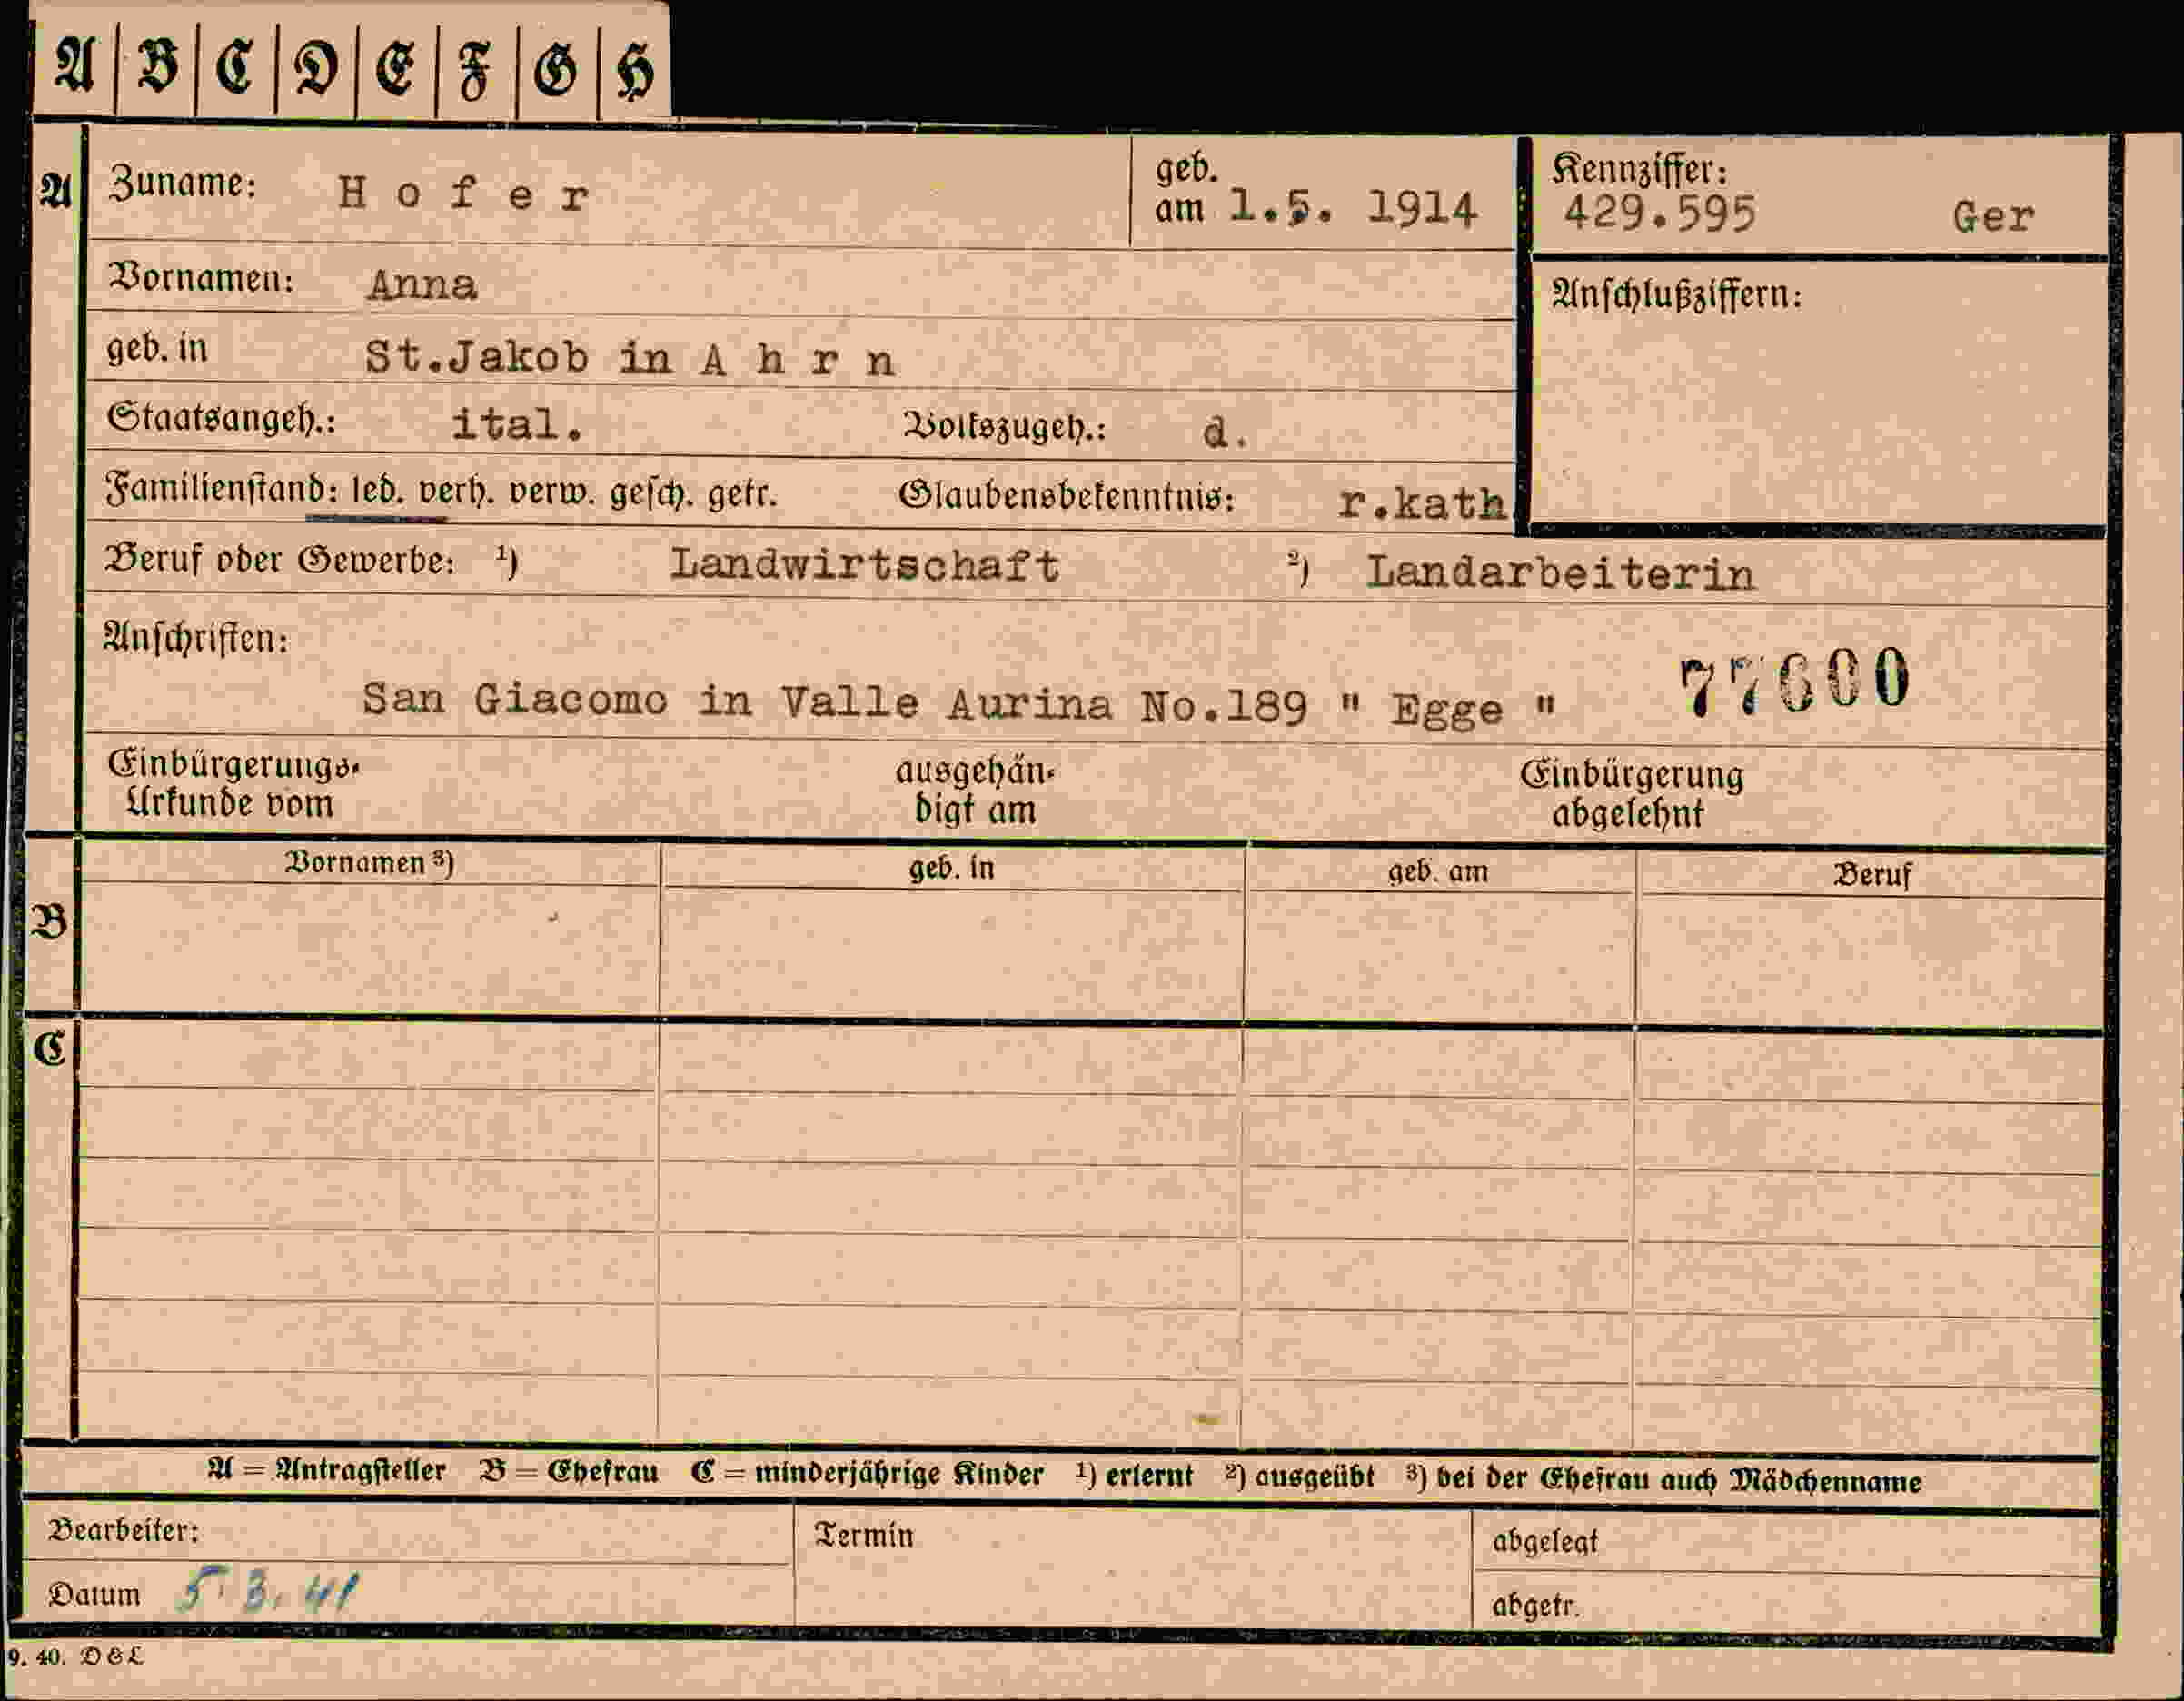 A B C D E F G H
A Zuname: Hofer geb. am 1.5. 1914 Kennziffer: 429.595 Ger
Vornamen: Anna Anschlußziffern:
geb. in St.Jakob in Ahrn
Staatsangeh.: ital. Volkszugeh.: d.
Familienstand: led. verh. verw. gesch. getr. Glaubensbekenntnis: r.kath
Beruf oder Gewerbe: ¹) Landwirtschaft ²) Landarbeiterin
Anschriften:
San Giacomo in Valle Aurina No.189 " Egge " 77600
Einbürgerungs- ausgehän- Einbürgerung
Urkunde vom digt am abgelehnt
Vornamen ³) geb. in geb. am Beruf
B
C
A = Antragsteller B = Ehefrau C = minderjährige Kinder ¹) erlernt ²) ausgeübt ³) bei der Ehefrau auch Mädchenname
Bearbeiter: Termin abgelegt
Datum 5. 3. 41 abgetr.
9. 40. D&L